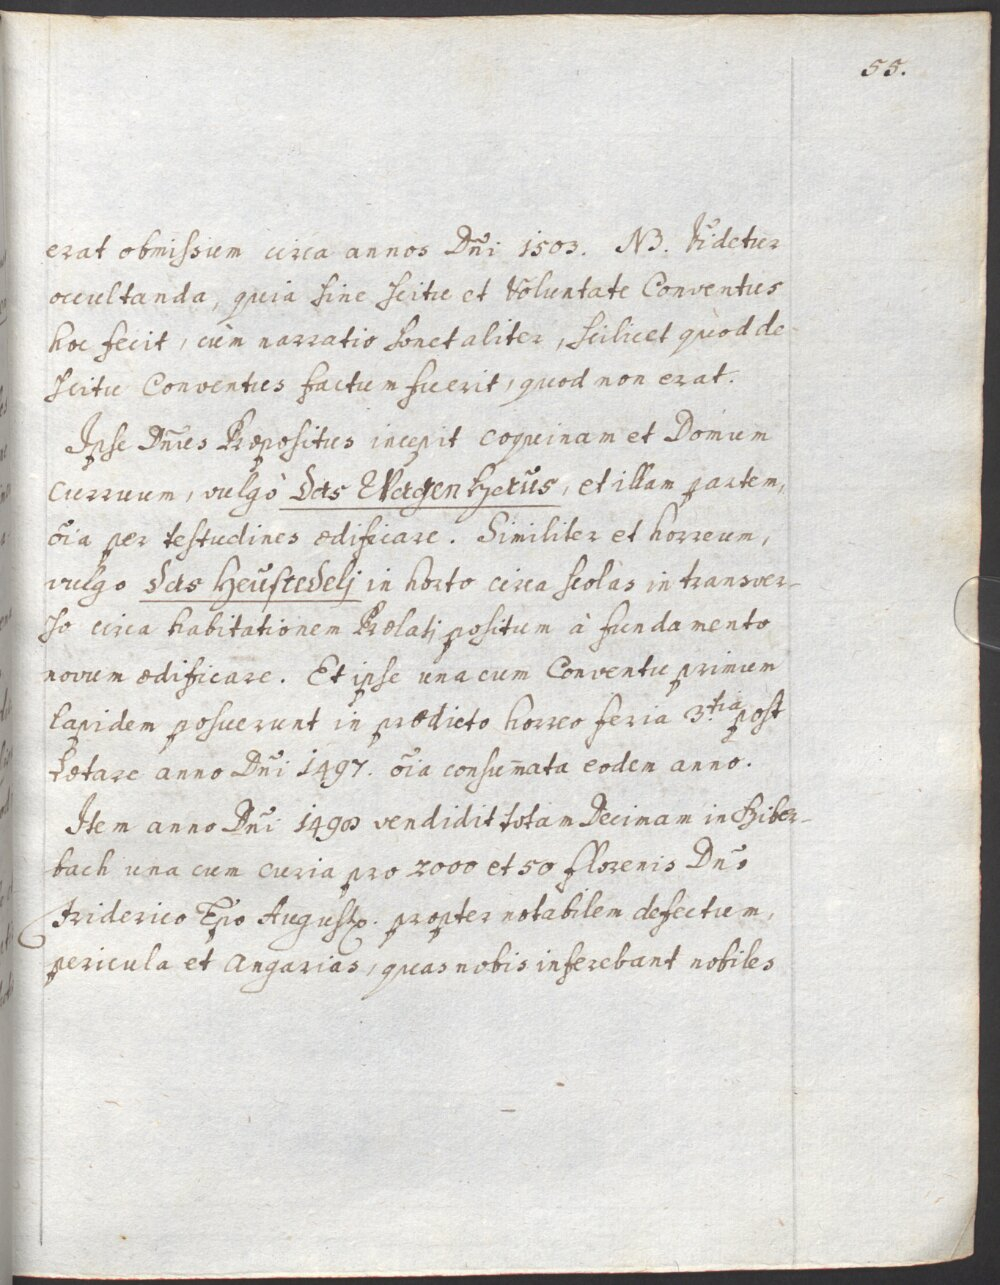 55.
erat obmissum circa annos Dñi 1503. NB. Videtur
occultanda, quia sine scitu et Voluntate Conventus
hoc fecit, cùm narratio sonet aliter, scilicet quòd de
scitu Conventus factum fuerit, quod non erat.
Ipse Dñus Præpositus incepit coquinam et Domum
curruum, vulgò das Wagenhaus, et illam partem,
õia per testudines ædificare. Similiter et horreum,
vulgo das Heüstedelj in horto circa scolas in transver-
so circa habitationem Prælatj positum à fundamento
novum ædificare. Et ipse una cum Conventu primum
lapidem posuerunt in prædicto horreo feria 3.tiâ post
Lætare anno Dñi 1497. õia consum̃ata eodem anno.
Item anno Dñi vendidit totam Decimam in Biber-
bach una cum curia pro 2000 et 50 florenis Dño
Friderico Epõ August. propter notabilem defectum,
pericula et Angarias, quas nobis inferebant nobiles